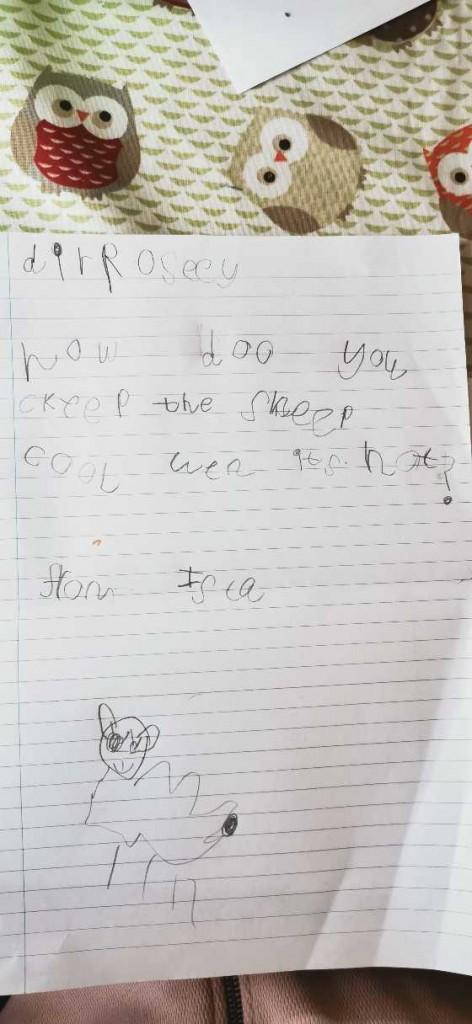 dir Roseey
how doo you
ckeep the sheep
cool wen its hot?
from Isla